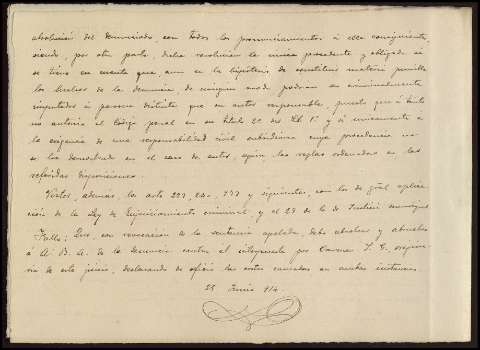 absolución del denunciado, con todos los pronunciamientos á ella consiguientes,
siendo, por otra parte, dicha resolución la única procedente y obligada si
se tiene en cuenta que, aun en la hipótesis de constituir materia punible
los hechos de la denuncia, de ningún modo podrían ser criminalmente
imputados á persona distinta que su autor responsable, puesto que á tanto
no autoriza el Código penal en su título 2º del Lib 1º y sí únicamente a
la exigencia de una responsabilidad civil subsidiaria cuya procedencia no
se ha demostrado en el caso de autos, según las reglas ordenadas en las
referidas disposiciones.
Vistos, además, los arts 239, 240, y siguientes, con los de gral aplica-
ción de la Ley de Enjuiciamiento criminal, y el 29 de la de Justicia municipal
Fallo: Que, con revocación de la sentencia apelada, debo absolver y absuelvo
á A. B. A. de la denuncia contra él interpuesta por Carmen S. G. origina-
ria de este juicio, declarando de oficio las costas causadas en ambas instancias.
25 Junio 914